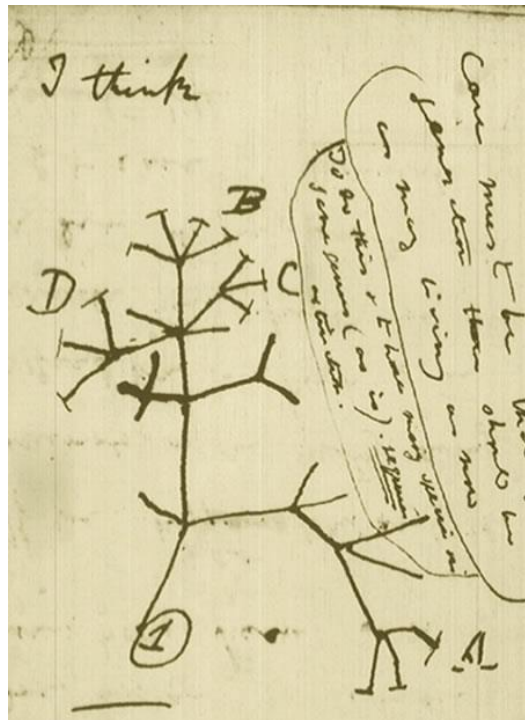 I think
B
D
C
1
A
Case must be that
generation then should be
as many living as now
To do this & to have many species in
same genus (as is). requires
extinction.